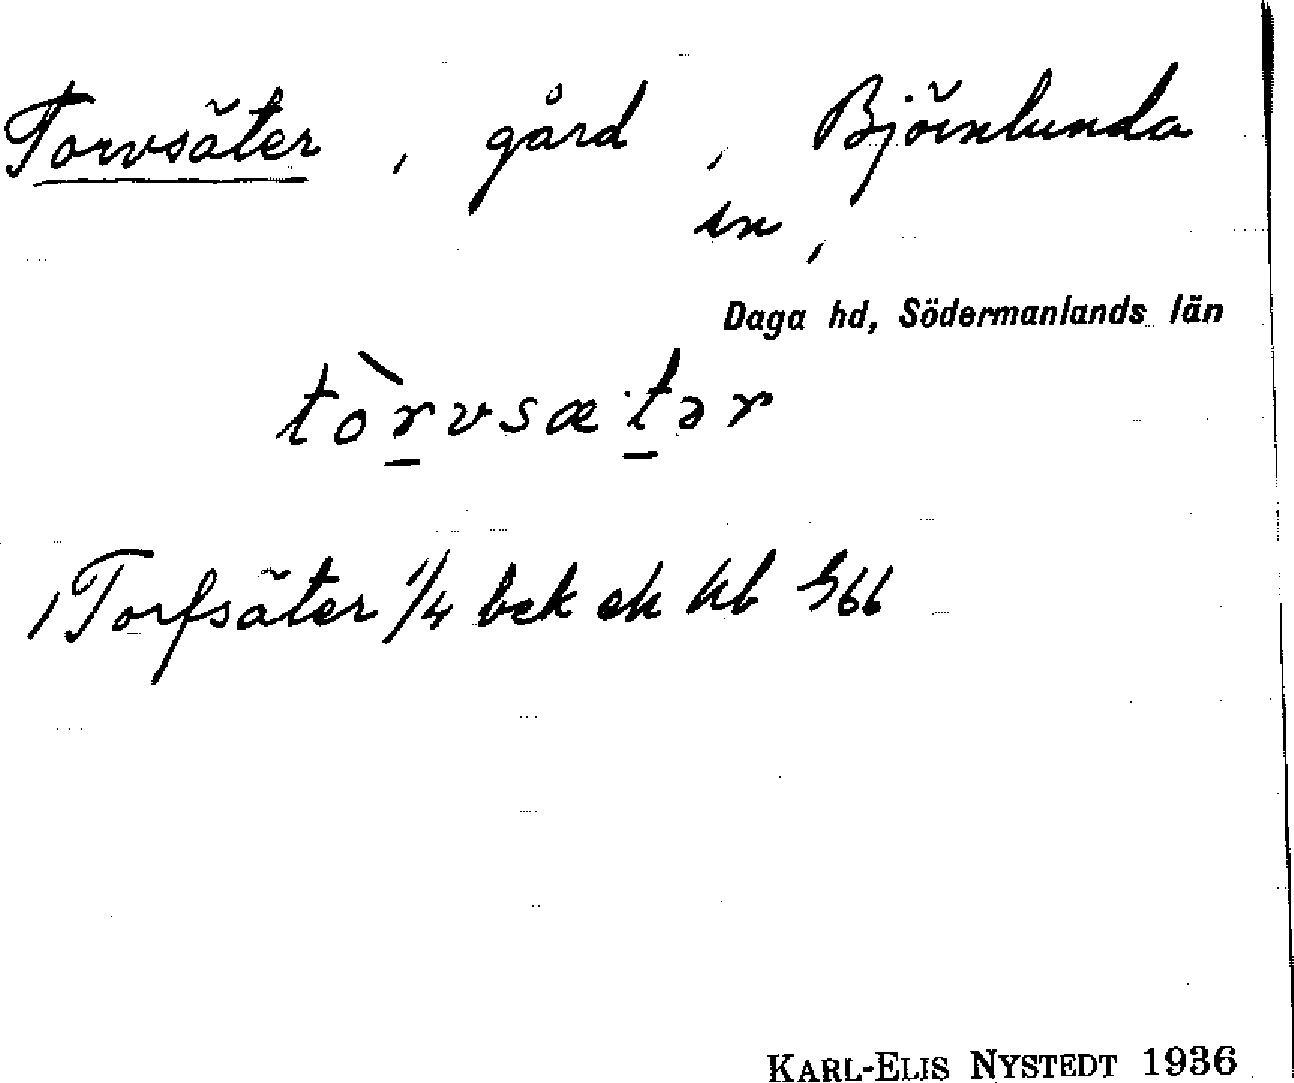 Torvsäter, gård, Björnlunda
sn,
Daga hd, Södermanlands län
tòrvsætər
1 Torfsäter 1/4 bek ek kb S66
KARL-ELIS NYSTEDT 1936